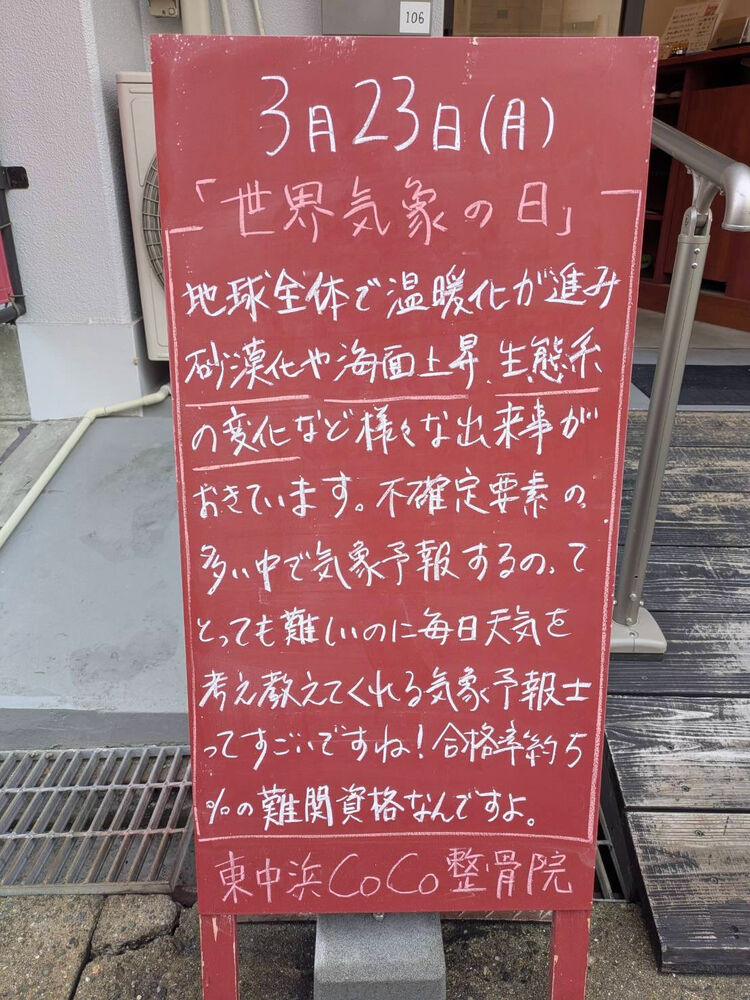 106
3月23日(月)
「世界気象の日」
地球全体で温暖化が進み
砂漠化や海面上昇、生態系
の変化など様々な出来事が
おきています。不確定要素の
多い中で気象予報するの、て
とっても難しいのに毎日天気を
考え教えてくれる気象予報士
ってすごいですね!合格率約5
%の難関資格なんですよ。
東中浜CoCo整骨院